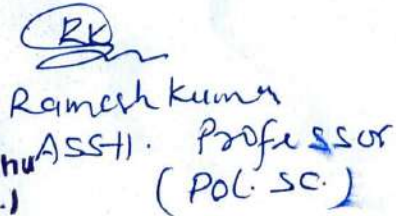 RK
Ramesh Kumar
hu ASStt. Professor
.) (POL. SC.)